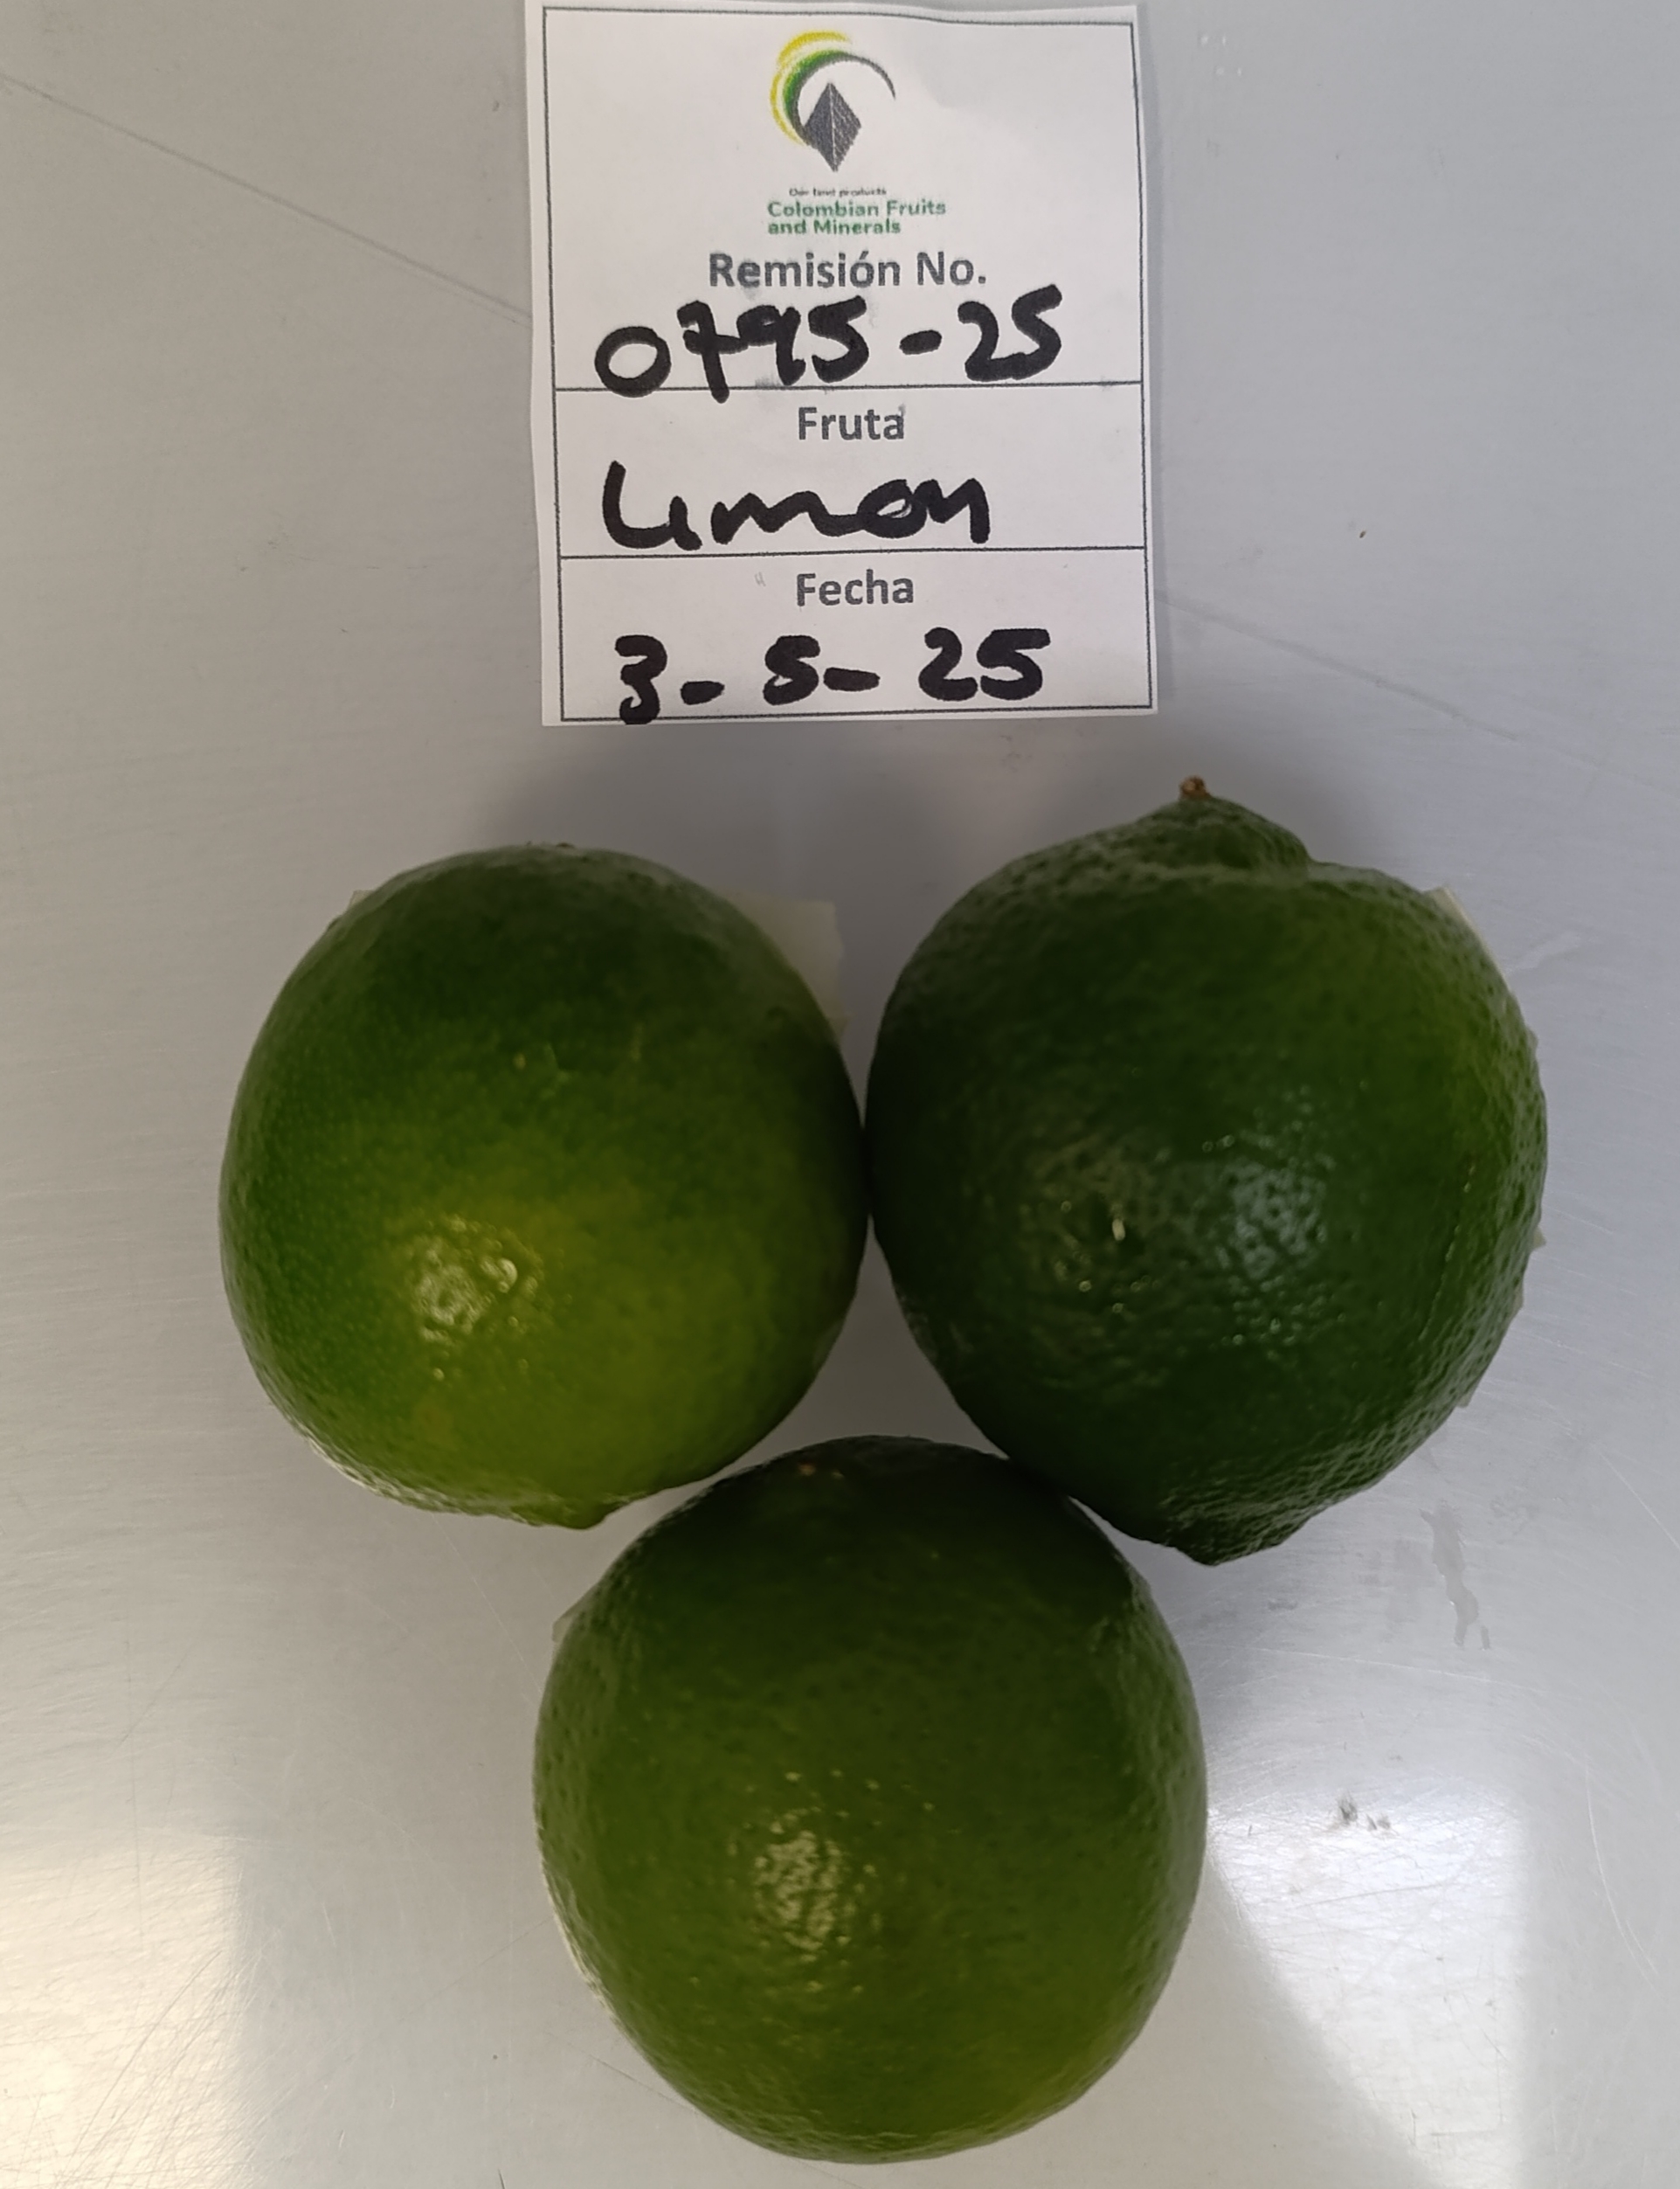 Our land products
Colombian Fruits
and Minerals
Remisión No.
0795-25
Fruta
Limon
Fecha
3-5-25